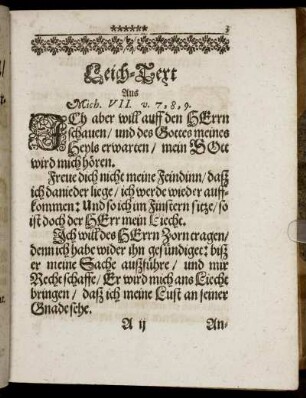 ****** 3
Leich-Text
Aus
Mich. VII. v. 7. 8. 9.
ICh aber will auff den HErrn
schauen / und des Gottes meines
Heyls erwarten / mein GOtt
wird mich hören.
Freue dich nicht meine Feindinn / daß
ich danieder liege / ich werde wieder auff-
kommen: Und so ich im Finstern sitze / so
ist doch der HErr mein Liecht.
Ich will des HErrn Zorn tragen /
denn ich habe wider ihn gesündiget: biß
er meine Sache außführe / und mir
Recht schaffe / Er wird mich ans Liecht
bringen / daß ich meine Lust an seiner
Gnade sehe.
A ij An-